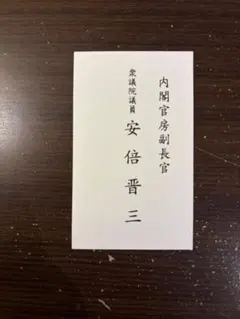 内閣官房副長官
衆議院議員 安倍晋三